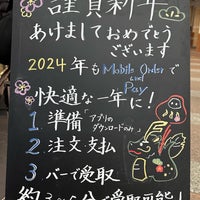 謹賀新年
あけましておめでとう
ございます
2024年もMobile Orderで
and
Pay
快適な一年に!
1 準備 アプリの
ダウンロードのみ
2 注文・支払
3 バーで受取
約3~5分で受取可能!